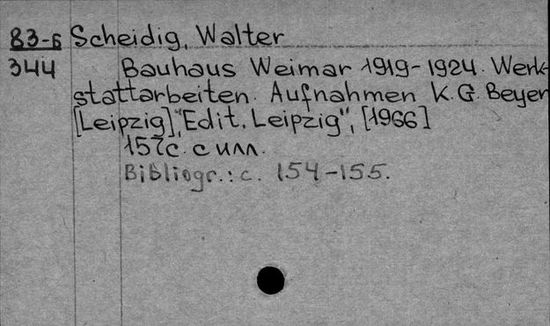 83-6 Scheidig, Walter
344 Bauhaus Weimar 1919-1924. Werk-
stattarbeiten. Aufnahmen K.G. Beyer
[Leipzig], "Edit. Leipzig", [1966]
157с. с илл.
Bibliogr.: с. 154-155.